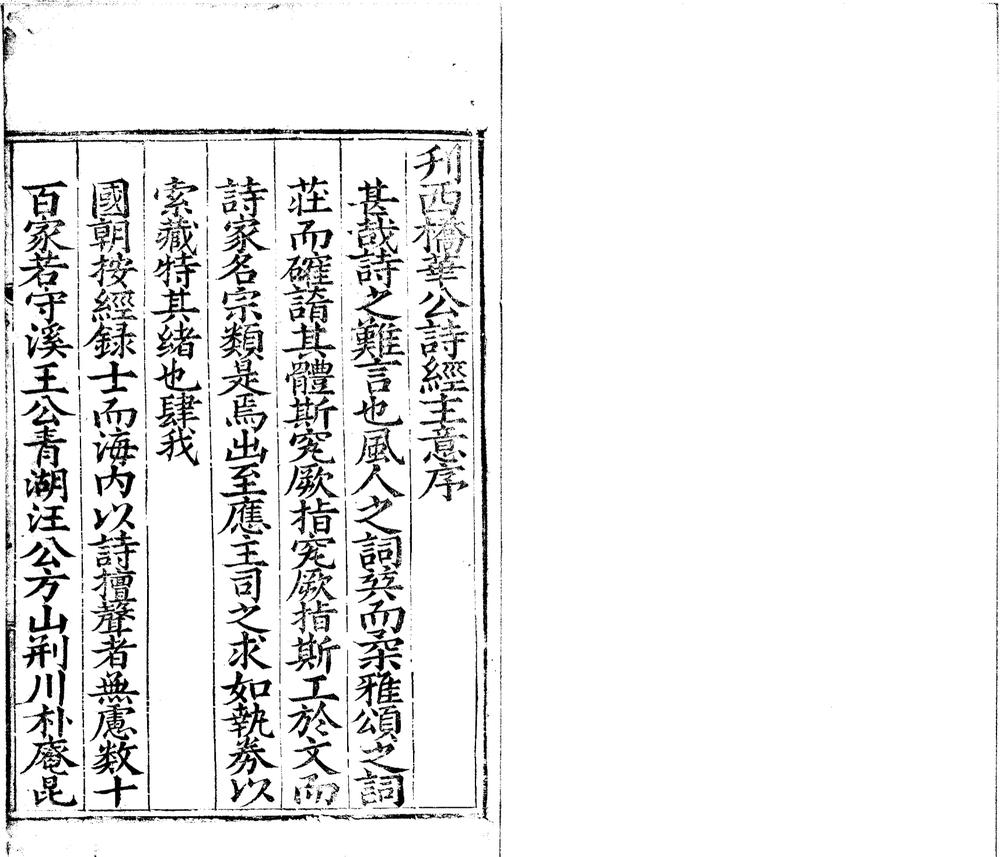 刋西橋華公詩經主意序
甚哉詩之難言也風人之詞㺯而柔雅頌之詞
莊而確諳其體斯究厥指究厥指斯工於文而
詩家名宗類是焉出至應主司之求如執券以
索藏特其緒也肆我
國朝按經録士而海內以詩擅聲者無慮数十
百家若守溪王公青湖汪公方山荆川朴庵昆